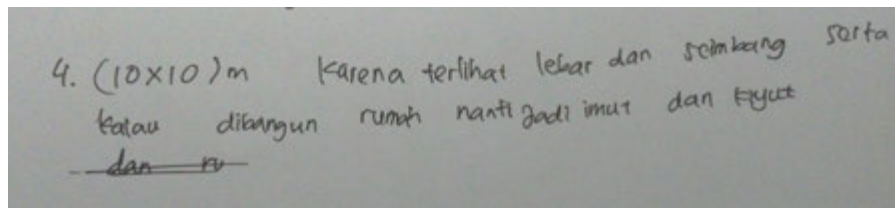 4. (10x10)m Karena terlihat lebar dan seimbang serta
Kalau dibangun rumah nanti jadi imut dan kyut
dan ru